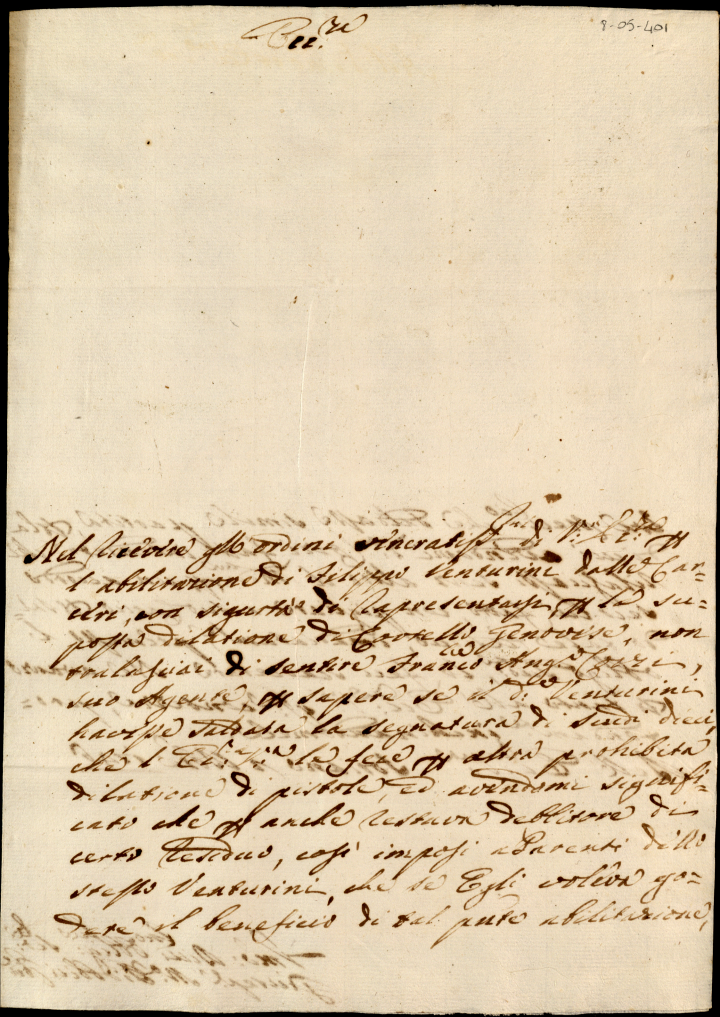 8-05-401
Ecc.za
Nel ricevere gl' ordini vincratiss.mi di V.ra Ecc.za p
l'abilitazione di Filippo Venturini dalle Car=
ceri, con sigurtà di rapresentarsi, p la su=
posta dilatione di Cortello Genovese, non
tralasciai di sentire Fran.co Ang.o Cozzi,
suo Agente, p sapere se il d.o Venturini
havesse saldata la segnatura di scudi dieci,
che l' Ecc.za V.ra le fece p altra prohibita
dilatione di pistole, ed avendomi signifi=
cato che p anche restava debbitore di
certo residuo, così imposi a Parenti dello
stesso Venturini, che se Egli voleva go=
dere il beneficio di tal pnte abilitazione,